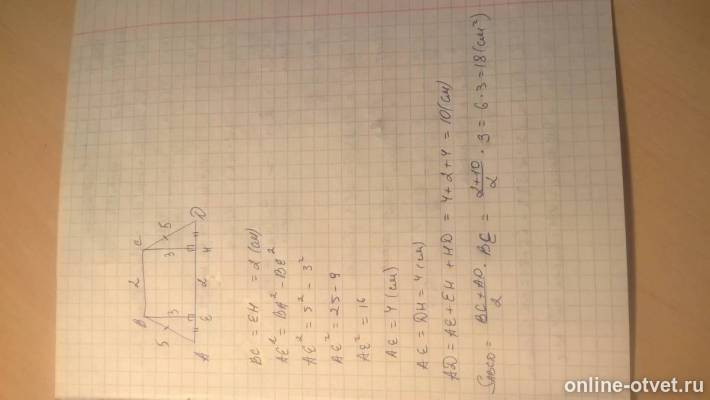 B 2 C
5 3 3 5
A E 2 H D
BC = EH = 2 (см)
AE² = BA² - BE²
AE² = 5² - 3²
AE² = 25 - 9
AE² = 16
AE = 4 (см)
AE = DH = 4 (см)
AD = AE + EH + HD = 4 + 2 + 4 = 10 (см)
SABCD = BC+AD/2 · BE = 2+10/2 · 3 = 6 · 3 = 18 (см²)
online-otvet.ru